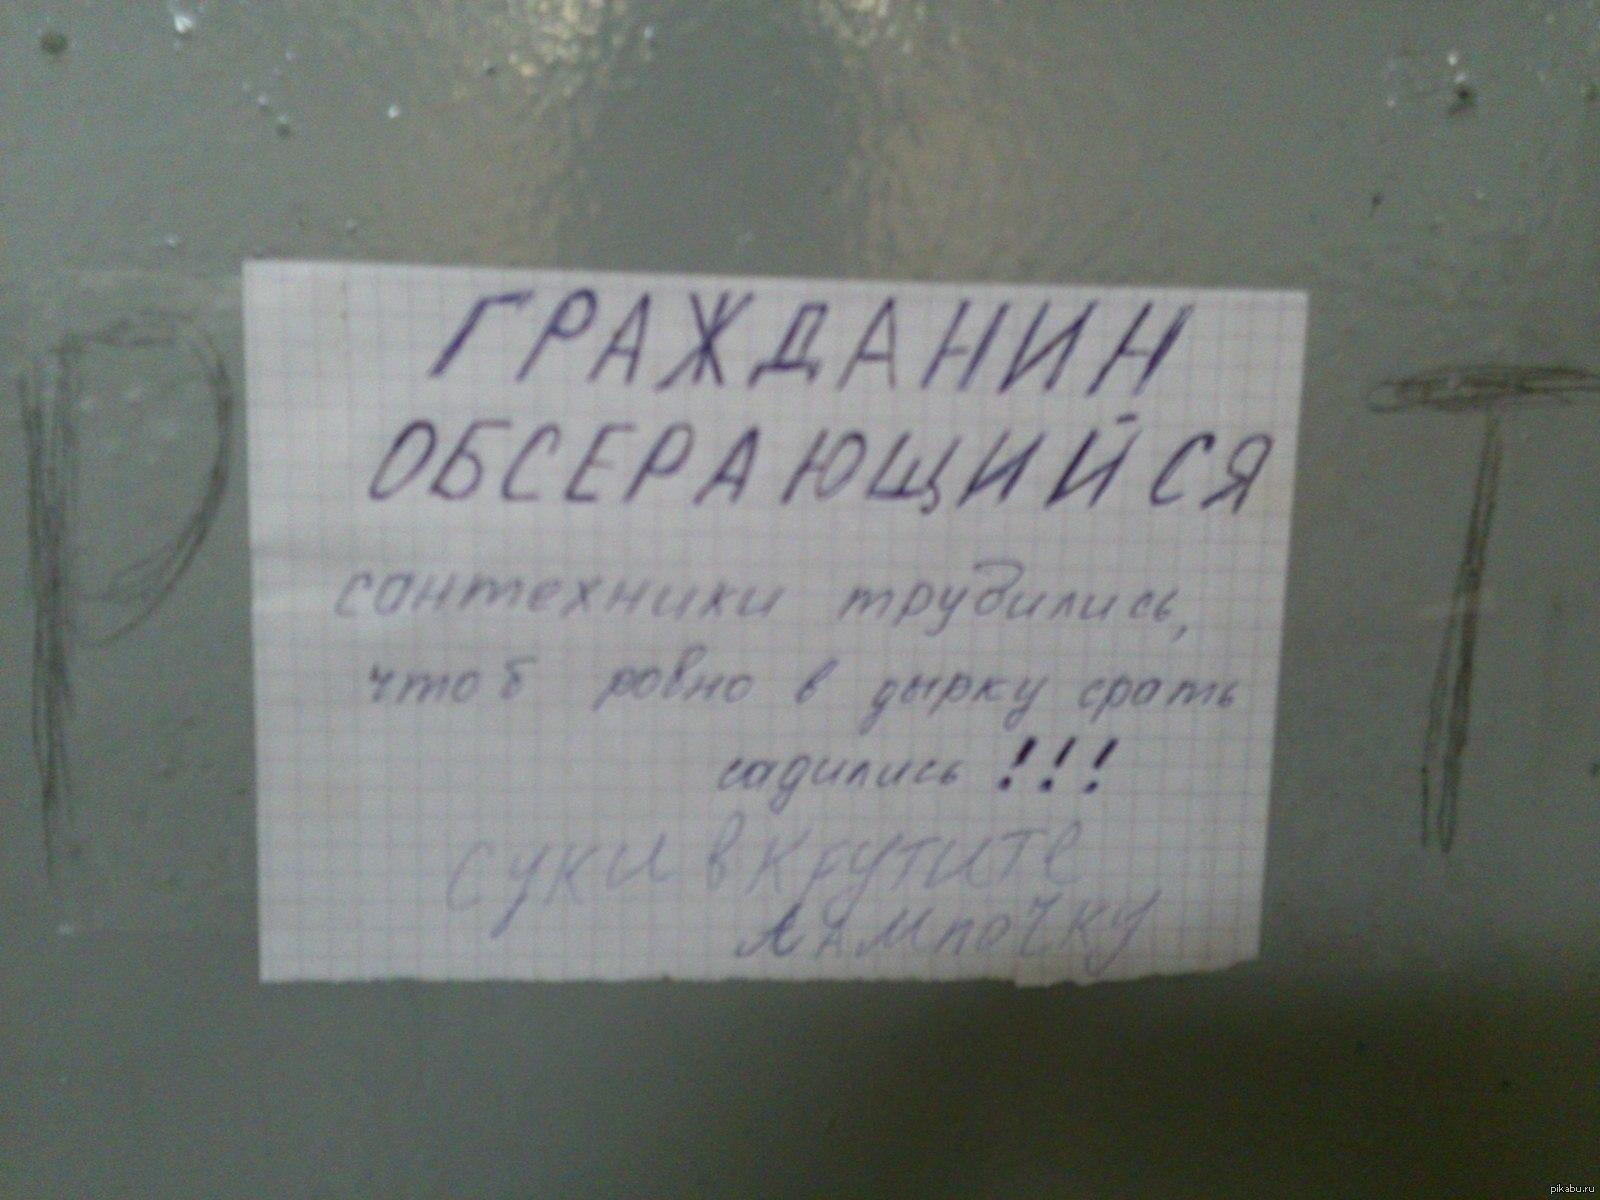 ГРАЖДАНИН
ОБСЕРАЮЩИЙСЯ
сантехники трудились,
чтоб ровно в дырку срать
садились!!!
суки вкрутите
лампочку
Р Т
pikabu.ru